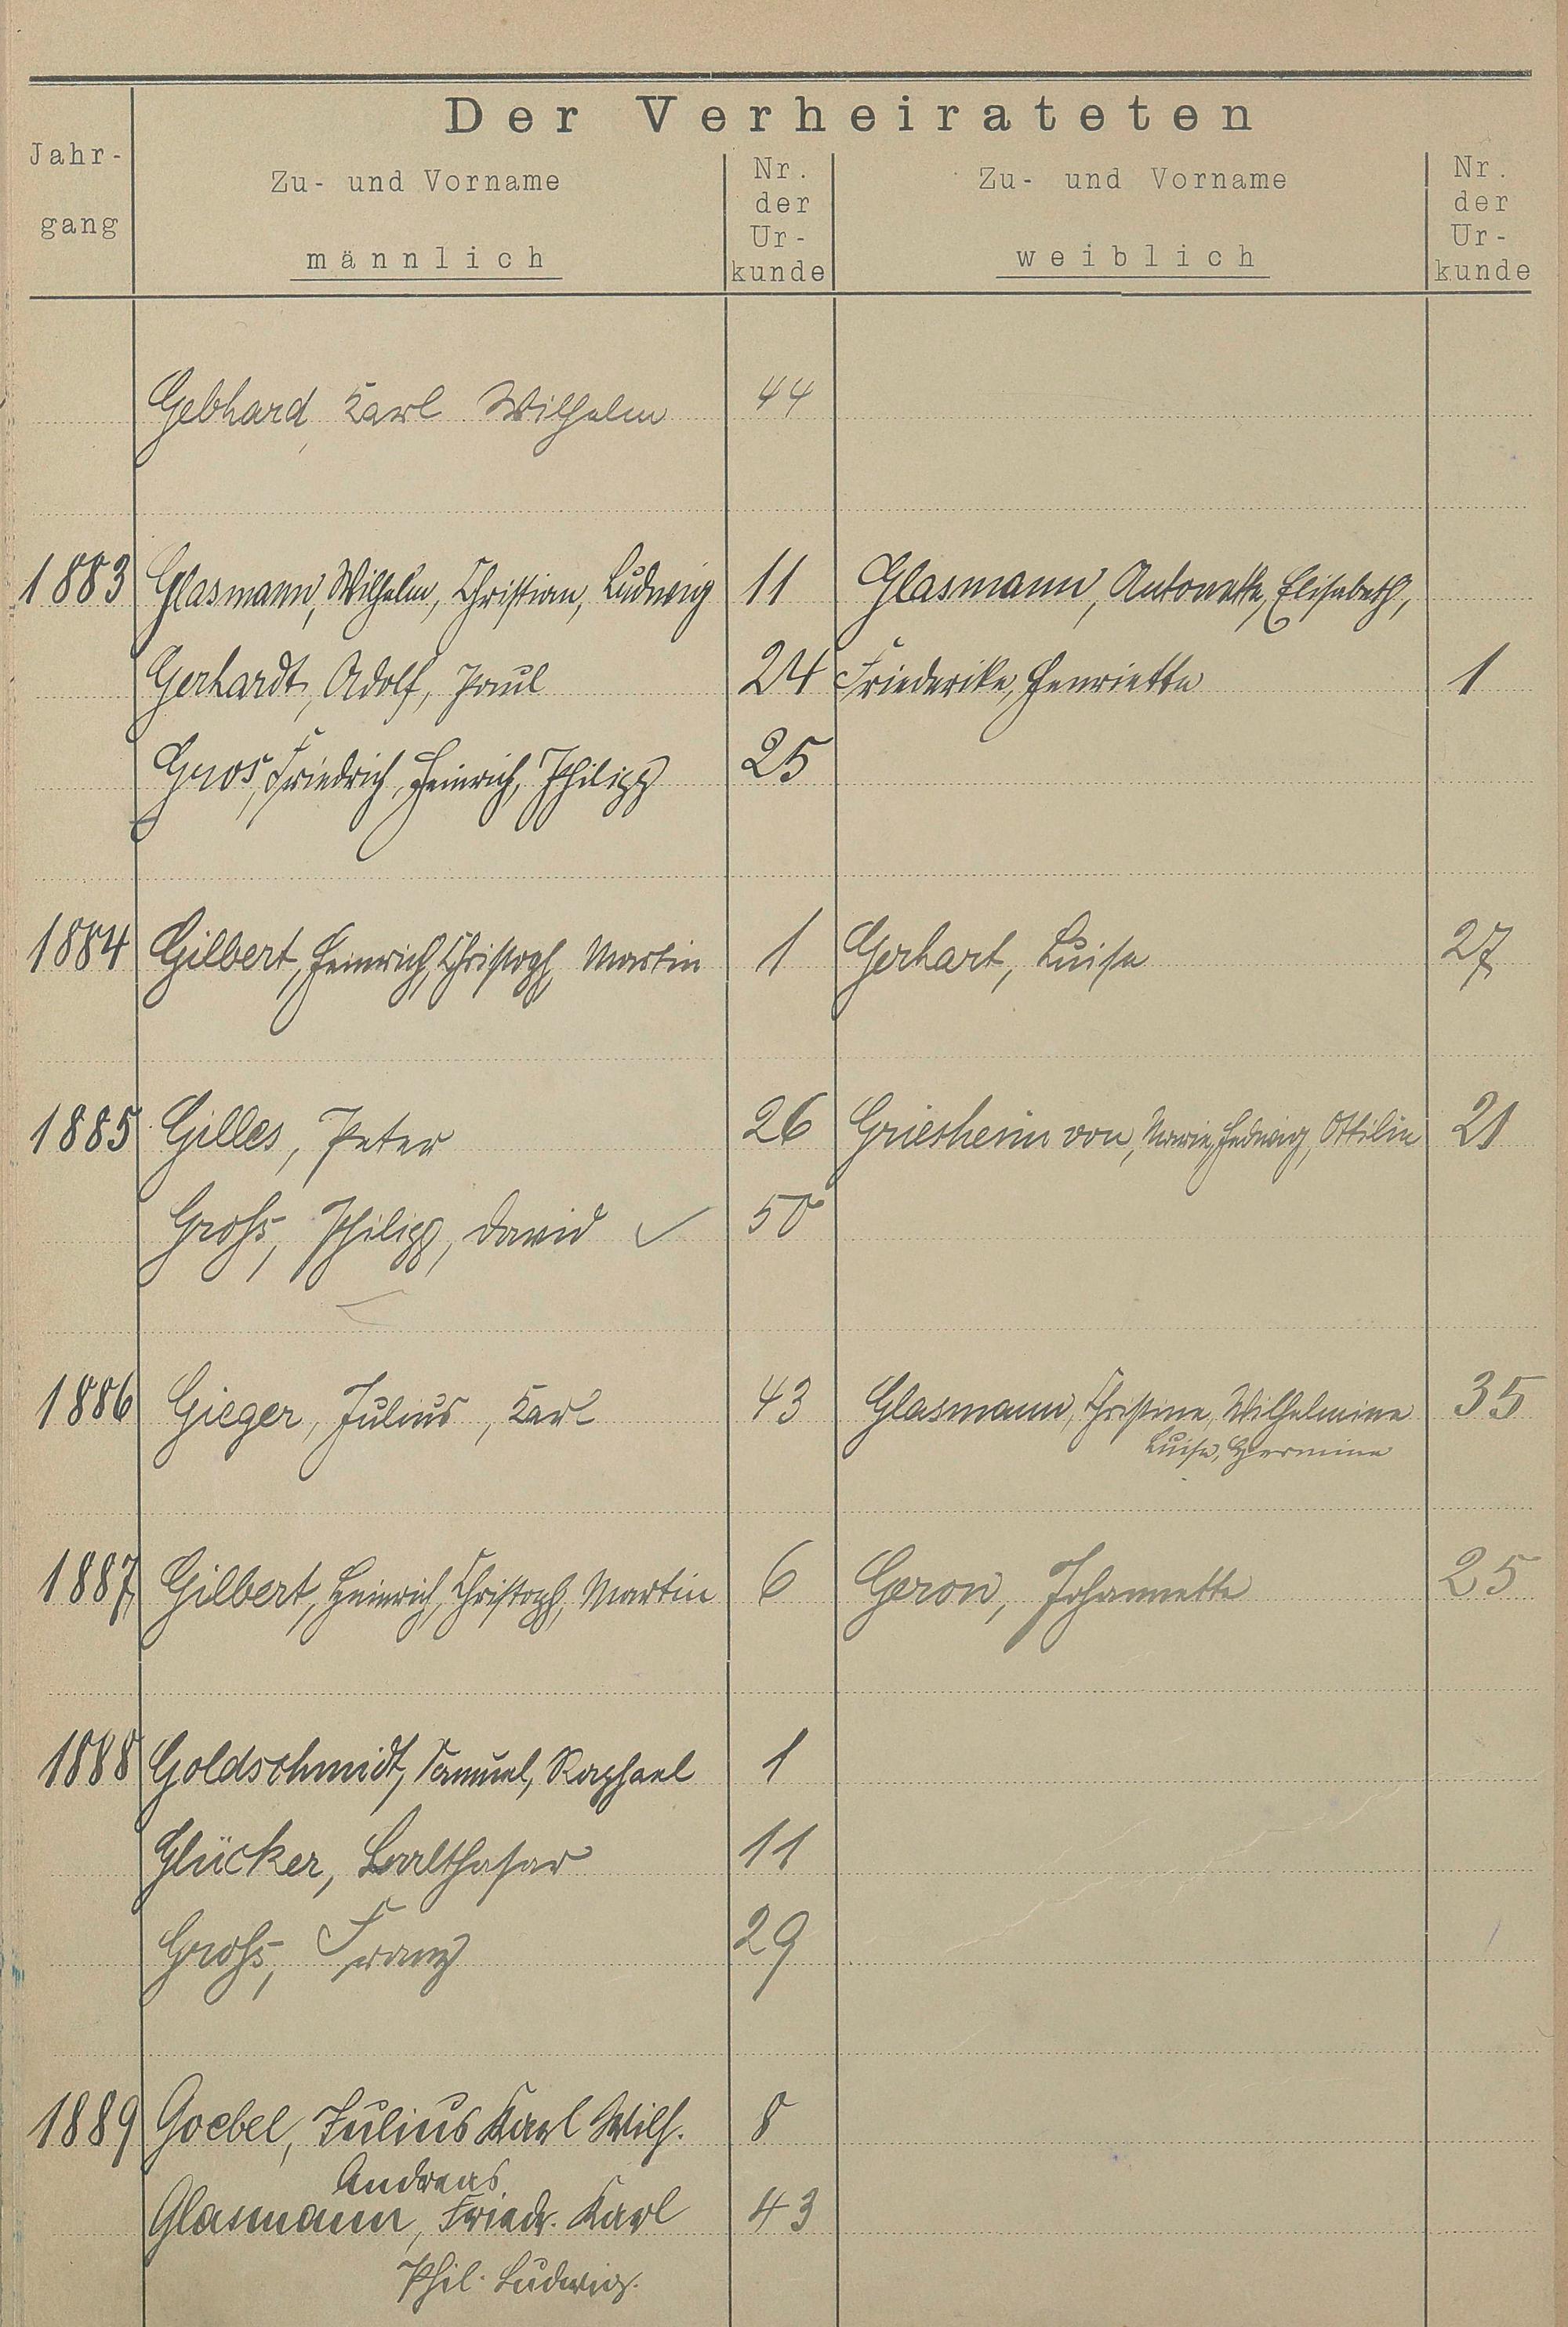 Der Verheirateten
Jahr-
gang
Zu- und Vorname
männlich
Nr.
der
Ur-
kunde
Zu- und Vorname
weiblich
Nr.
der
Ur-
kunde
Gebhard, Karl Wilhelm 44
1883 Glasmann, Wilhelm, Christian, Ludwig 11 Glasmann, Antonette, Elisabeth,
Gerhardt, Adolf, Paul 24 Friederike, Henriette 1
Gros, Friedrich, Heinrich, Philipp 25
1884 Gilbert, Heinrich, Christoph, Martin 1 Gerhart, Luise 27
1885 Gilles, Peter 26 Griesheim von, Marie, Hedwig, Ottilie 21
Groß, Philipp, David ✓ 50
1886 Gieger, Julius, Karl 43 Glasmann, Christine, Wilhelmine 35
Luise, Hermine
1887 Gilbert, Heinrich, Christoph, Martin 6 Geron, Johannette 25
1888 Goldschmidt, Samuel, Raphael 1
Glücker, Balthasar 11
Groß, Franz 29
1889 Goebel, Julius Karl Wilh. 8
Andreas
Glasmann, Friedr. Karl 43
Phil. Ludwig.